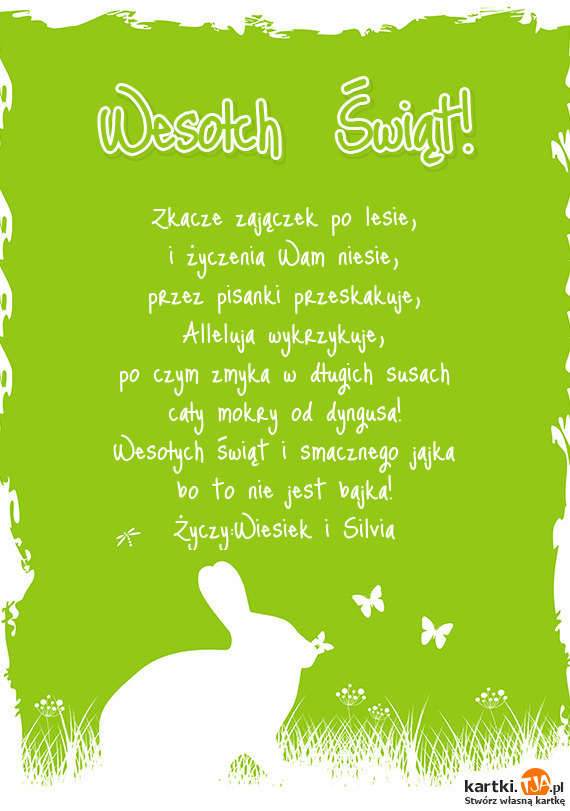 Wesołch Świąt!
Zkacze zajączek po lesie,
i życzenia Wam niesie,
przez pisanki przeskakuje,
Alleluja wykrzykuje,
po czym zmyka w długich susach
cały mokry od dyngusa!
Wesołych świąt i smacznego jajka
bo to nie jest bajka!
Życzy:Wiesiek i Silvia
kartki.TJA.pl
Stwórz własną kartkę